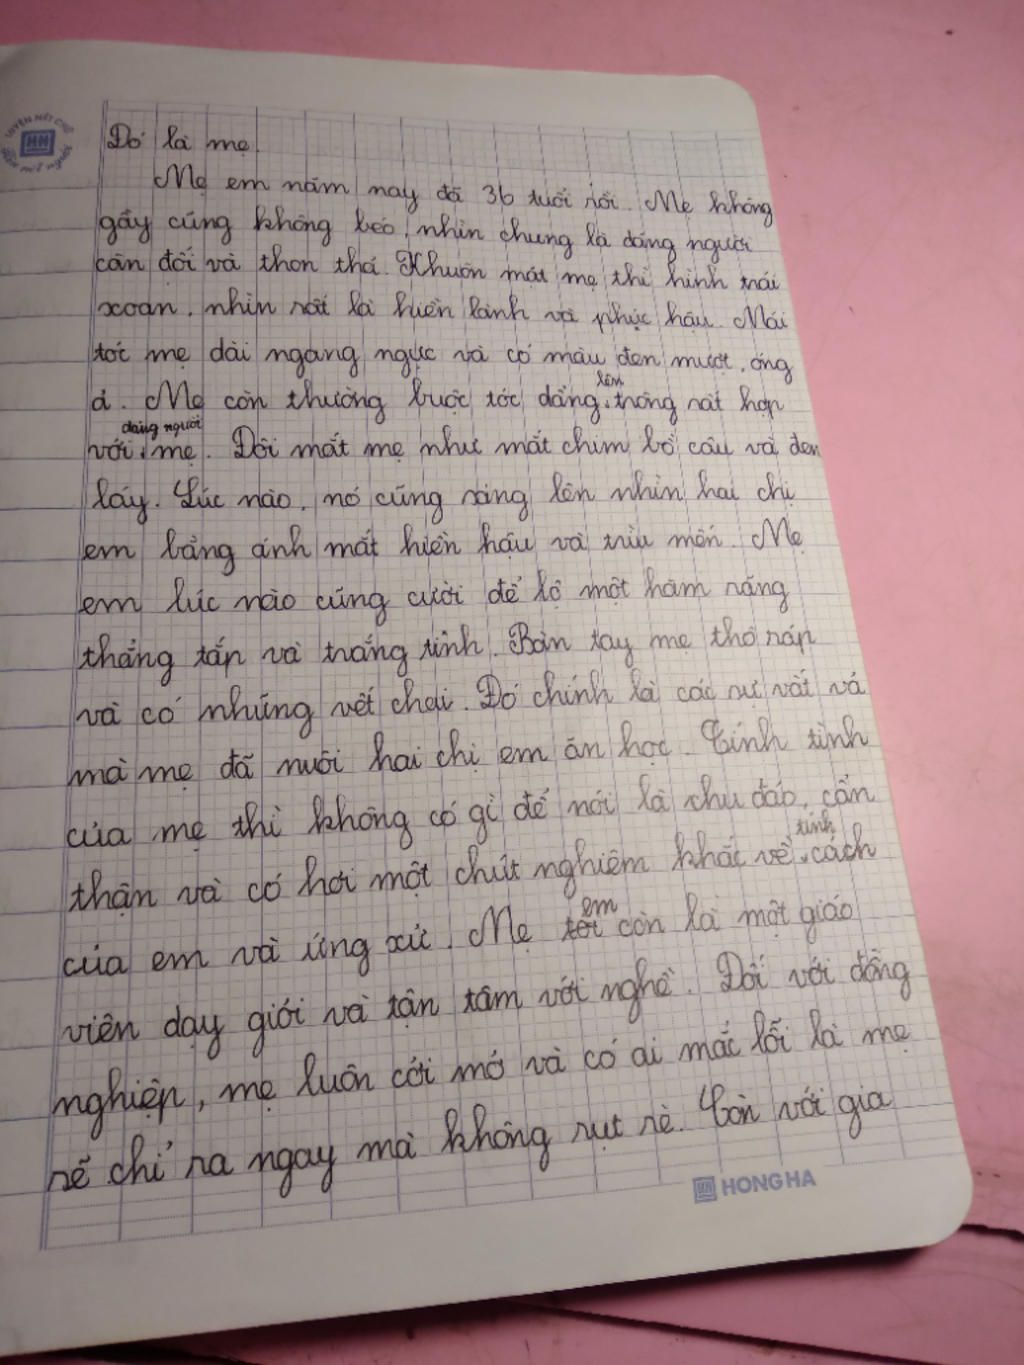 Đó là mẹ.
Mẹ em năm nay đã 36 tuổi rồi. Mẹ không
gầy cũng không béo, nhìn chung là dáng người
cân đối và thon thả. Khuôn mặt mẹ thì hình trái
xoan, nhìn rất là hiền lành và phúc hậu. Mái
tóc mẹ dài ngang ngực và có màu đen mượt, óng
ả. Mẹ còn thường buộc tóc đằng lên trông rất hợp
với dáng người mẹ. Đôi mắt mẹ như mắt chim bồ câu và đen
láy. Lúc nào, nó cũng sáng lên nhìn hai chị
em bằng ánh mắt hiền hậu và trìu mến. Mẹ
em lúc nào cũng cười để lộ một hàm răng
thẳng tắp và trắng tinh. Bàn tay mẹ thô ráp
và có những vết chai. Đó chính là các sự vất vả
mà mẹ đã nuôi hai chị em ăn học. Tính tình
của mẹ thì không có gì để nói là chu đáo, cẩn
thận và có hơi một chút nghiêm khắc về tính cách
của em và ứng xử. Mẹ tôi em còn là một giáo
viên dạy giỏi và tận tâm với nghề. Đối với đồng
nghiệp, mẹ luôn cởi mở và có ai mắc lỗi là mẹ
sẽ chỉ ra ngay mà không rụt rè. Còn với gia
HONG HA